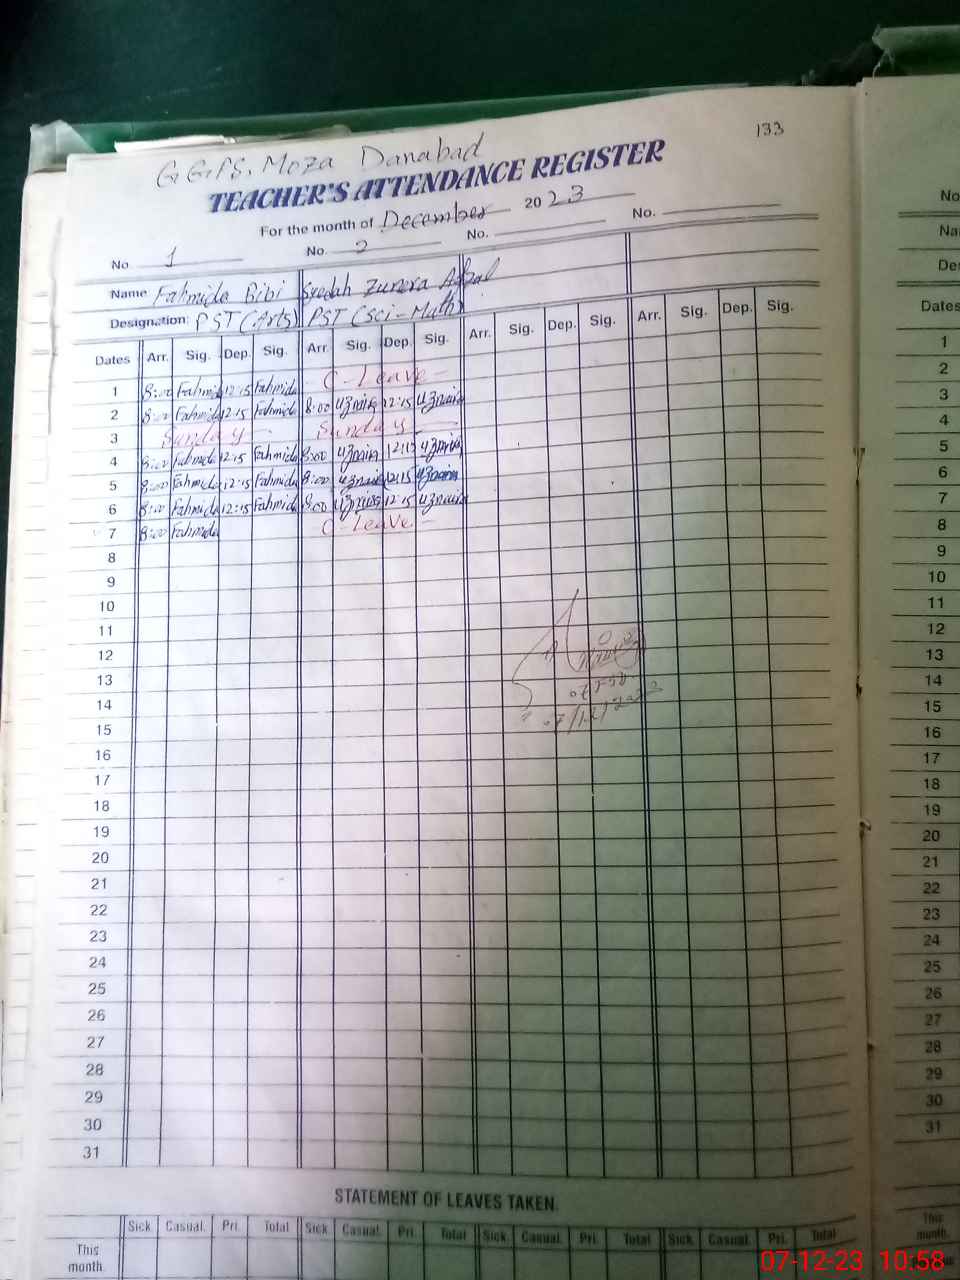 133
G GPS. Moza Danabad
TEACHER'S ATTENDANCE REGISTER
For the month of December 2023
No. 1 No. 2 No. No.
Name Fahmida Bibi Syedah Zunera Afzal
Designation: PST (Arts) PST (Sci-Math)
Dates Arr. Sig. Dep. Sig. Arr. Sig. Dep. Sig. Arr. Sig. Dep. Sig. Arr. Sig. Dep. Sig.
1 8:00 Fahmida 12:15 Fahmida C-Leave-
2 8:00 Fahmida 12:15 Fahmida 8:00 12:15
3 Sunday Sunday
4 8:00 Fahmida 12:15 Fahmida 8:00 12:15
5 8:00 Fahmida 12:15 Fahmida 8:00 12:15
6 8:00 Fahmida 12:15 Fahmida 8:00 12:15
7 8:00 Fahmida C-Leave-
8
9
10
11
12
13
14
15
16
17
18
19
20
21
22
23
24
25
26
27
28
29
30
31
07/12/2023
STATEMENT OF LEAVES TAKEN.
Sick Casual. Pri. Total Sick Casual. Pri. Total Sick. Casual. Pri. Total Sick. Casual. Pri. Total
This month.
No
Na
De
Dates
1
2
3
4
5
6
7
8
9
10
11
12
13
14
15
16
17
18
19
20
21
22
23
24
25
26
27
28
29
30
31
This month.
07-12-23 10:58